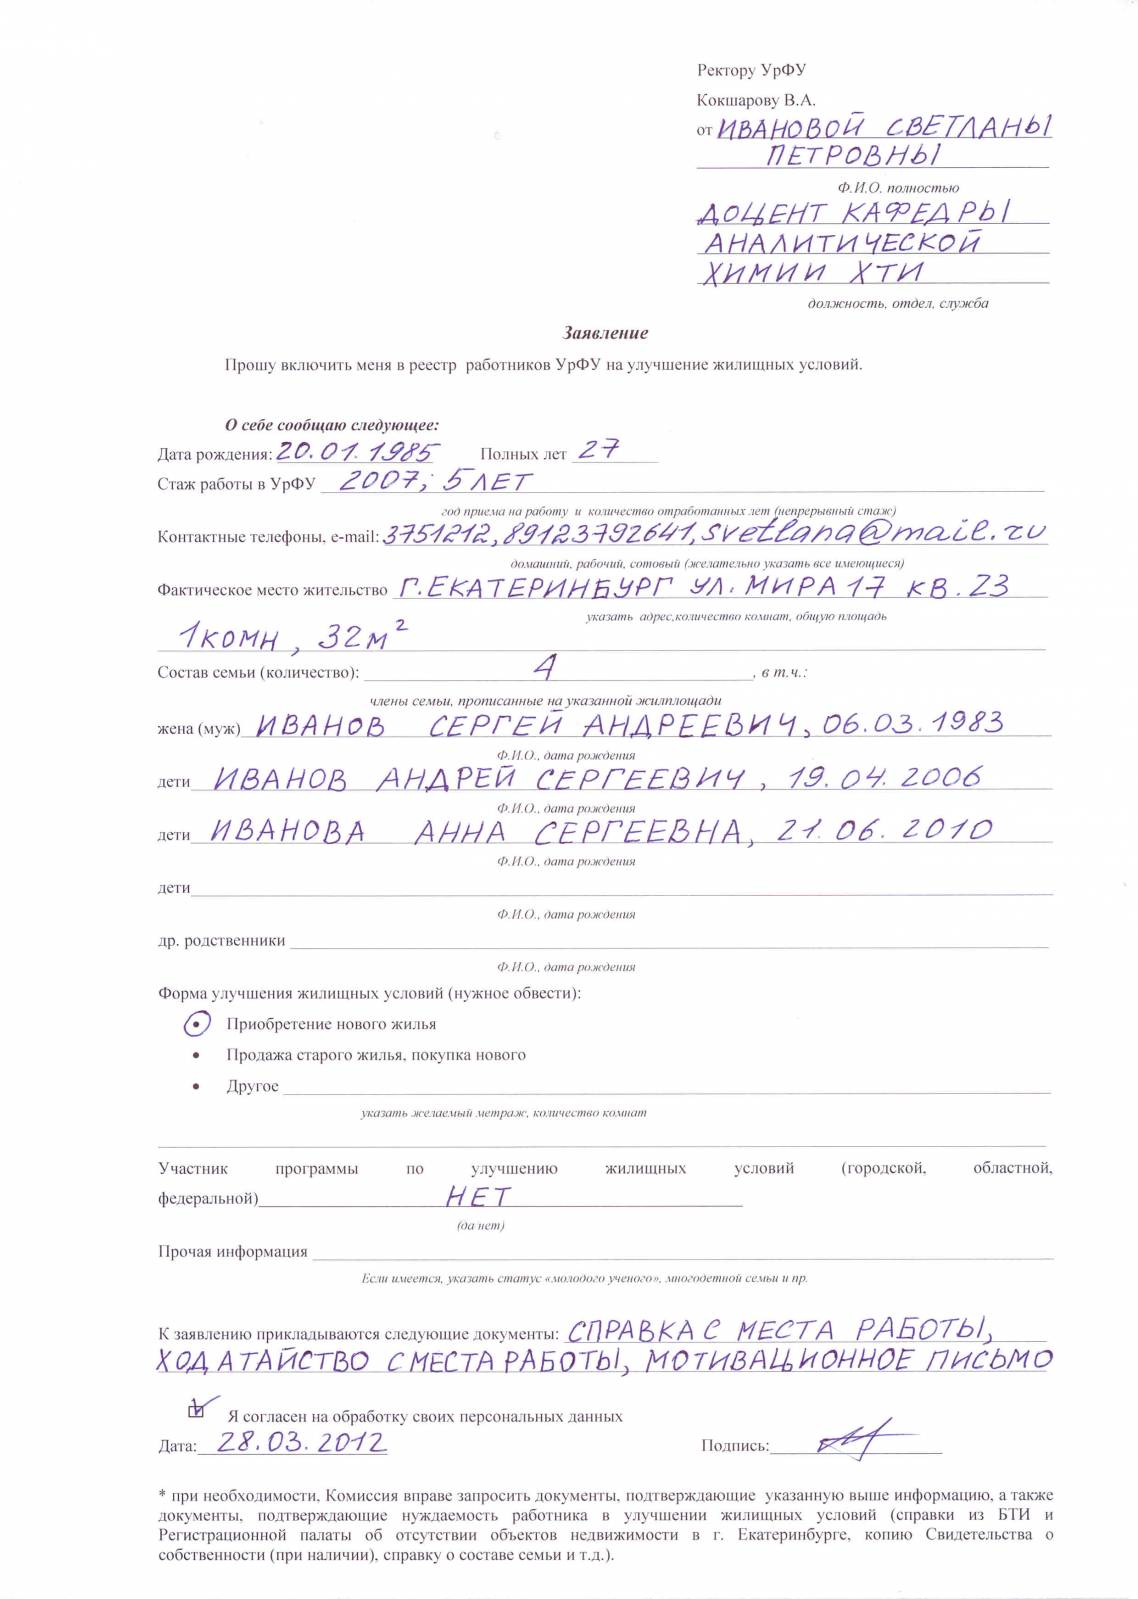 Ректору УрФУ
Кокшарову В.А.
от ИВАНОВОЙ СВЕТЛАНЫ
ПЕТРОВНЫ
Ф.И.О. полностью
ДОЦЕНТ КАФЕДРЫ
АНАЛИТИЧЕСКОЙ
ХИМИИ ХТИ
должность, отдел, служба
Заявление
Прошу включить меня в реестр работников УрФУ на улучшение жилищных условий.
О себе сообщаю следующее:
Дата рождения: 20.01.1985 Полных лет 27
Стаж работы в УрФУ 2007; 5 ЛЕТ
год приема на работу и количество отработанных лет (непрерывный стаж)
Контактные телефоны, e-mail: 3751212, 89123792641, svetlana@mail.ru
домашний, рабочий, сотовый (желательно указать все имеющиеся)
Фактическое место жительство Г. ЕКАТЕРИНБУРГ УЛ. МИРА 17 КВ. 23
указать адрес,количество комнат, общую площадь
1 КОМН, 32 М²
Состав семьи (количество): 4, в т.ч.:
члены семьи, прописанные на указанной жилплощади
жена (муж) ИВАНОВ СЕРГЕЙ АНДРЕЕВИЧ, 06.03.1983
Ф.И.О., дата рождения
дети ИВАНОВ АНДРЕЙ СЕРГЕЕВИЧ, 19.04.2006
Ф.И.О., дата рождения
дети ИВАНОВА АННА СЕРГЕЕВНА, 21.06.2010
Ф.И.О., дата рождения
дети
Ф.И.О., дата рождения
др. родственники
Ф.И.О., дата рождения
Форма улучшения жилищных условий (нужное обвести):
• Приобретение нового жилья
• Продажа старого жилья, покупка нового
• Другое
указать желаемый метраж, количество комнат
Участник программы по улучшению жилищных условий (городской, областной,
федеральной) НЕТ
(да нет)
Прочая информация
Если имеется, указать статус «молодого ученого», многодетной семьи и пр.
К заявлению прикладываются следующие документы: СПРАВКА С МЕСТА РАБОТЫ,
ХОДАТАЙСТВО С МЕСТА РАБОТЫ, МОТИВАЦИОННОЕ ПИСЬМО
Я согласен на обработку своих персональных данных
Дата: 28.03.2012 Подпись:
* при необходимости, Комиссия вправе запросить документы, подтверждающие указанную выше информацию, а также
документы, подтверждающие нуждаемость работника в улучшении жилищных условий (справки из БТИ и
Регистрационной палаты об отсутствии объектов недвижимости в г. Екатеринбурге, копию Свидетельства о
собственности (при наличии), справку о составе семьи и т.д.).